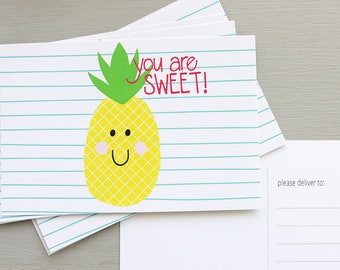 you are
SWEET!
please deliver to: